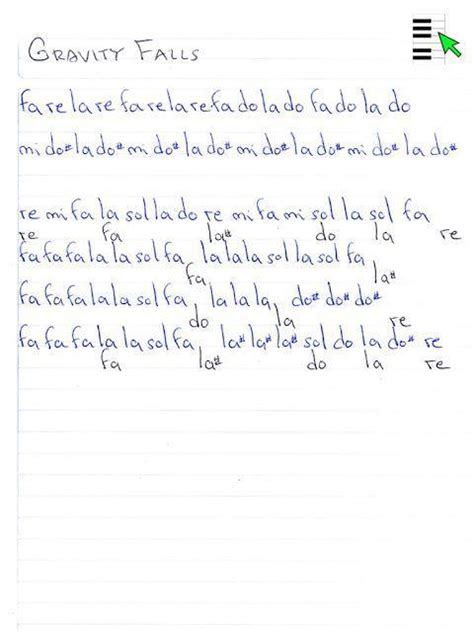 GRAVITY FALLS
fa re la re fa re la re fa do la do fa do la do
mi do# la do# mi do# la do# mi do# la do# mi do# la do#
re mi fa la sol la do re mi fa mi sol la sol fa
re fa la# do la re
fa fa fa la la sol fa, la la la sol la sol fa,
fa, la#
fa fa fa la la sol fa, la la la, do# do# do#
do la re
fa fa fa la la sol fa, la# la# la# sol do la do# re
fa la# do la re